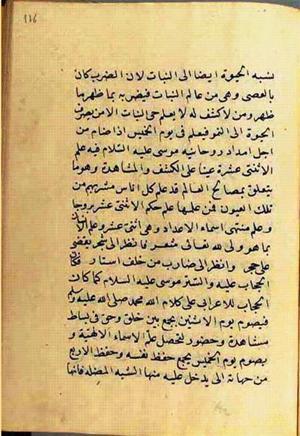 116
نسبه الحيوة ايضا الى النبات لان الضرب كان
بالعصى وهى من عالم النبات فيضربه بما ظهر بها
ظهر ومن لا كشف له لا يعلم حى النبات الا من يعرف
الحيوة الى النمو فيعلم فى يوم الخميس اذا ضام من
اجل امداد روحانية موسى عليه السلام فيه علم
الاثنتى عشرة عينا على الكشف والمشاهدة وهو ما
يتعلق بمصالح العالم قد علم كل اناس مشربهم من
تلك العيون فمن علمها علم حكم الاثنتى عشر برجا
وعلم منتهى اسماء الاعداد وهى اثنى عشر وعلم الانسان
بما هو ولى لله تعالى شعر فانظر الى شجر يقضى
على حجر وانظر الى ضارب من خلف استار فكان
الحجاب عليه والستر موسى عليه السلام كما كان
الحجاب للاعرابى على كلام الله محمد صلى الله عليه وسلم
فيصوم يوم الاثنين يجمع بين خلق وحق فى بساط
مشاهدة وحضور لتحصيل علم الاسماء الالهية و
يصوم يوم الخميس يجمع حفظ نفسه وحفظ الاربع
من جهاته الى يدخل عليه منها الشبه المضله فانها